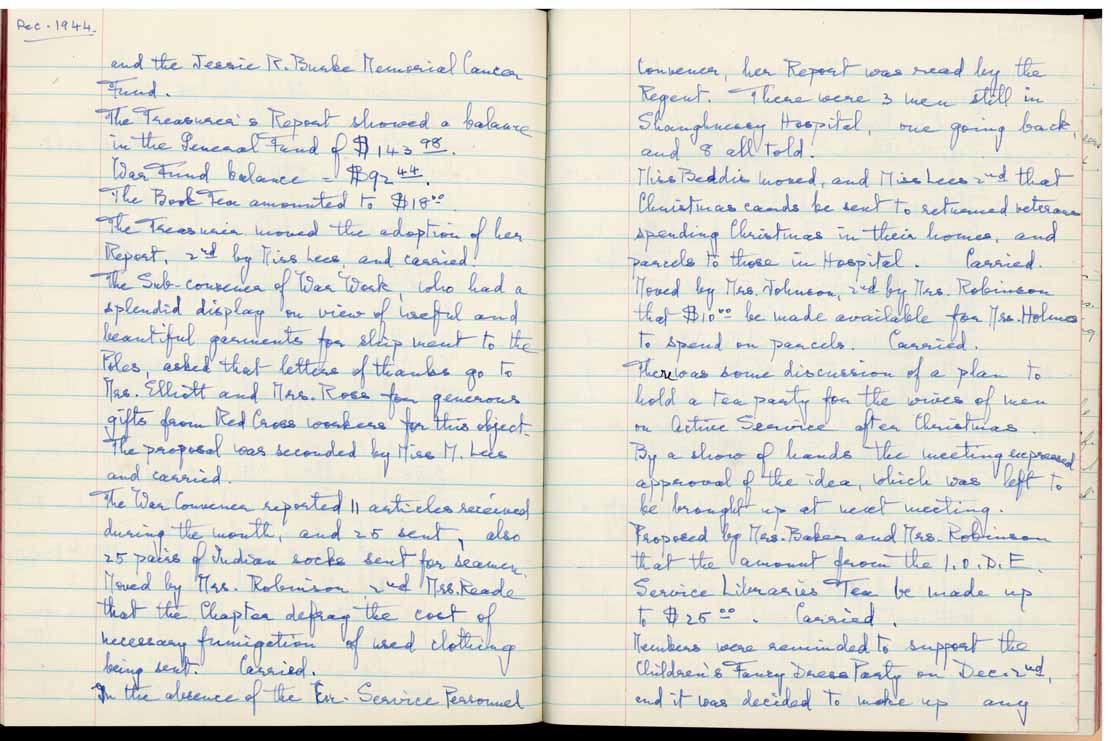 Dec. 1944.
and the Jessie R. Burke Memorial Cancer
Fund.
The Treasurer's Report showed a balance
in the General Fund of $143 98.
War Fund balance = $92 44.
The Book Tea amounted to $18 00
The Treasurer moved the adoption of her
Report, 2nd by Miss Lees, and carried.
The Sub-convener of War Work, who had a
splendid display on view of useful and
beautiful garments for shipment to the
Poles, asked that letters of thanks go to
Mrs. Elliott and Mrs. Ross for generous
gifts from Red Cross workers for this object.
The proposal was seconded by Miss M. Lees
and carried.
The War Convener reported 11 articles received
during the month, and 25 sent, also
25 pairs of Indian socks sent for seamen.
Moved by Mrs. Robinson, 2nd Mrs. Reade
that the Chapter defray the cost of
necessary fumigation of used clothing
being sent. Carried.
In the absence of the Ex-Service Personnel
Convener, her Report was read by the
Regent. There were 3 men still in
Shaughnessy Hospital, one going back,
and 8 all told.
Miss Beddis moved, and Miss Lees 2nd that
Christmas cards be sent to returned veterans
spending Christmas in their homes, and
parcels to those in Hospital. Carried.
Moved by Mrs. Johnson, 2nd by Mrs. Robinson
that $10 00 be made available for Mrs. Holmes
to spend on parcels. Carried.
There was some discussion of a plan to
hold a tea party for the wives of men
on Active Service after Christmas.
By a show of hands the meeting expressed
approval of the idea, which was left to
be brought up at next meeting.
Proposed by Mrs. Baker and Mrs. Robinson
that the amount from the I.O.D.E.
Service Libraries Tea be made up
to $25 00. Carried.
Members were reminded to support the
Children's Fancy Dress Party on Dec. 2nd,
and it was decided to make up any